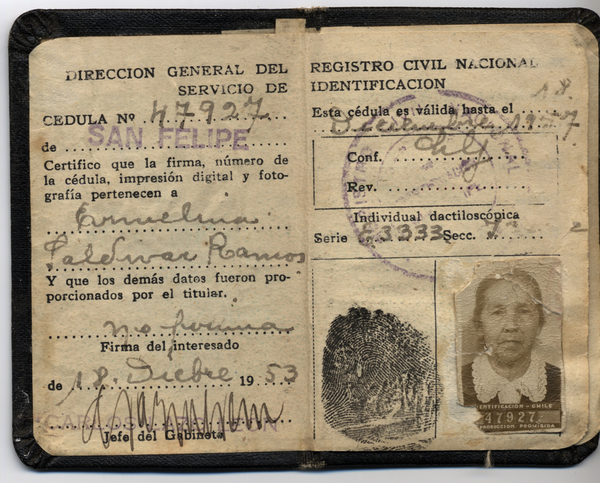 DIRECCION GENERAL DEL
SERVICIO DE
CEDULA Nº 47927
de SAN FELIPE
Certifico que la firma, número de
la cédula, impresión digital y foto-
grafía pertenecen a
Saldivar Ramos
Y que los demás datos fueron pro-
porcionados por el titular.
no firma
Firma del interesado
de 18 Dicbre 1953
Jefe del Gabinete
REGISTRO CIVIL NACIONAL
IDENTIFICACION
18
Esta cédula es válida hasta el
Diciembre 1957
Conf.
Rev.
Individual dactiloscópica
Serie E3333 Secc.
IDENTIFICACION - CHILE
47927
PRODUCCION PROHIBIDA